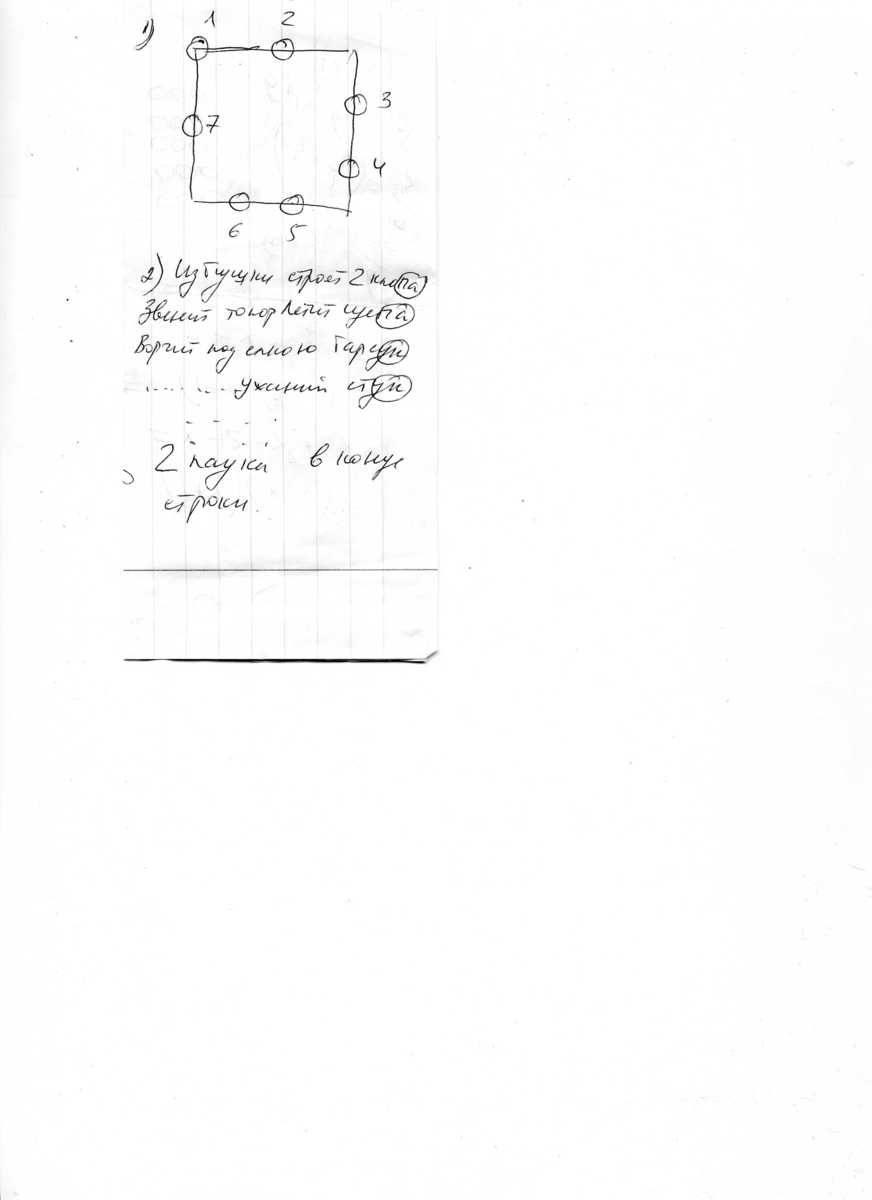 1)
1 2
3
7
4
6 5
2) Избушки строет 2 кло па
Звенит топор Летит ще па
Ворчит под елкою барсук
........ ужинный стук
2 паука в конце
строки.